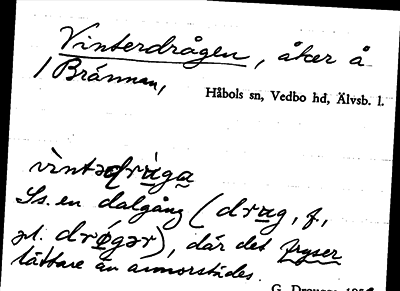 Vinterdrågen, åker å
/ Brännan,
Håbols sn, Vedbo hd, Älvsb. l.
vintədràga
Ss. en dalgång (drag, f.,
pl. drǿgər), där det fryser
lättare än annorstädes.
G.